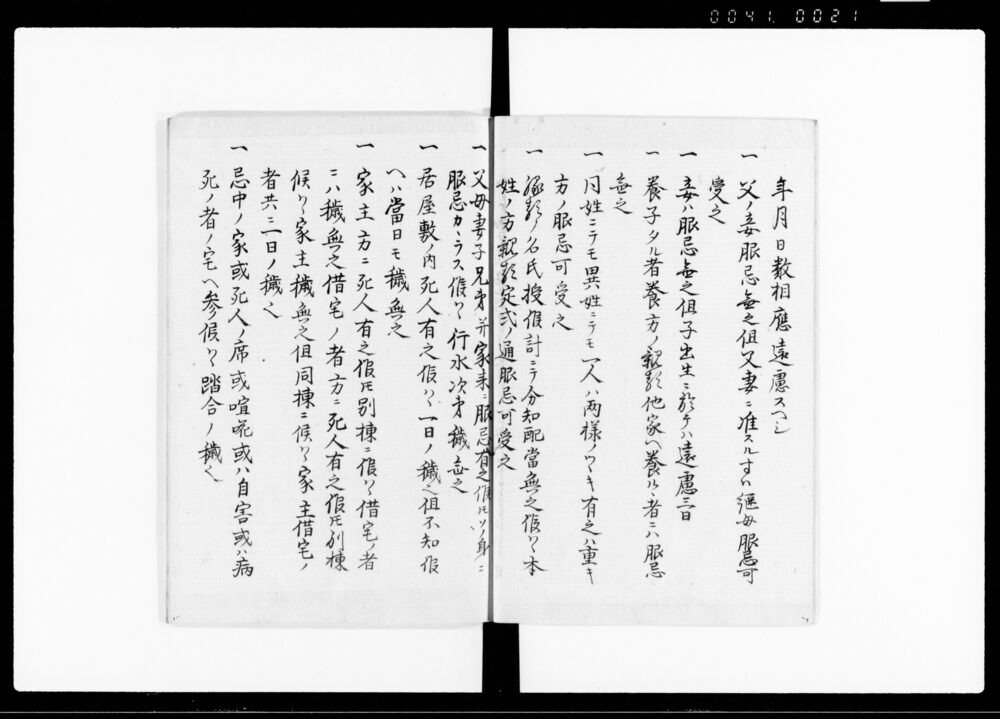 0041. 0021
年月日数相應遠慮スヘシ
一 父ノ妾服忌無之但父妻ニ准スルすハ継母服忌可
受之
一 妾ハ服忌無之但子出生ニ於テハ遠慮三日
一 養子タル者養方ノ親類他家ヘ養ルヽ者ニハ服忌
無之
一 同姓ニテモ異姓ニテモ一人ハ両様ノツヽキ有之ハ重キ
方ノ服忌可受之
一 縁類ノ名氏授候計ニテ分知配當無之候ハヽ本
姓ノ方親類定式ノ通服忌可受之
一 父母妻子兄弟并家来ニ服忌有之候ヒ其身ニ
服忌カヽラス候ハヽ行水次第穢無之
一 居屋敷内死人有之候ハヽ一日ノ穢之但不知候
ヘハ當日モ穢無之
一 家主方ニ死人有之候ヒ別棟ニ候ハヽ借宅ノ者
ニハ穢無之借宅ノ者方ニ死人有之候ヒ別棟
候ハヽ家主穢無之但同棟ニ候ハヽ家主借宅ノ
者共ニ一日ノ穢也
一 忌中ノ家或死人ノ席或喧𠵅或ハ自害或ハ病
死ノ者ノ宅ヘ参候ハヽ踏合ノ穢也